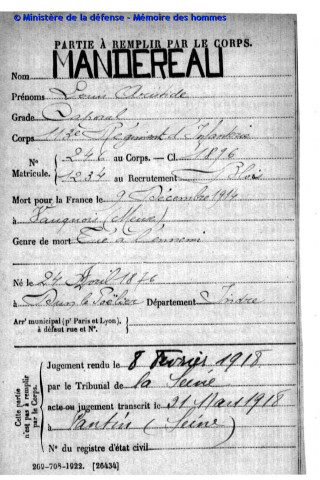 © Ministère de la défense - Mémoire des hommes
PARTIE À REMPLIR PAR LE CORPS.
Nom MANDEREAU
Prénoms Louis Aristide
Grade Caporal
Corps 113e Régiment d'Infanterie
N° 246 au Corps. — Cl. 1896
Matricule. 1234 au Recrutement Blois
Mort pour la France le 9 Décembre 1914
à Vauquois (Meuse)
Genre de mort Tué à l'ennemi
Né le 24 Avril 1876
à Département Indre
Arrt municipal (pr Paris et Lyon),
à défaut rue et N°.
Cette partie
n'est pas à remplir
par le Corps.
Jugement rendu le 8 Février 1918
par le Tribunal de la Seine
acte ou jugement transcrit le 21 Mars 1918
à Pantin (Seine)
N° du registre d'état civil
260-708-1922. [26434]